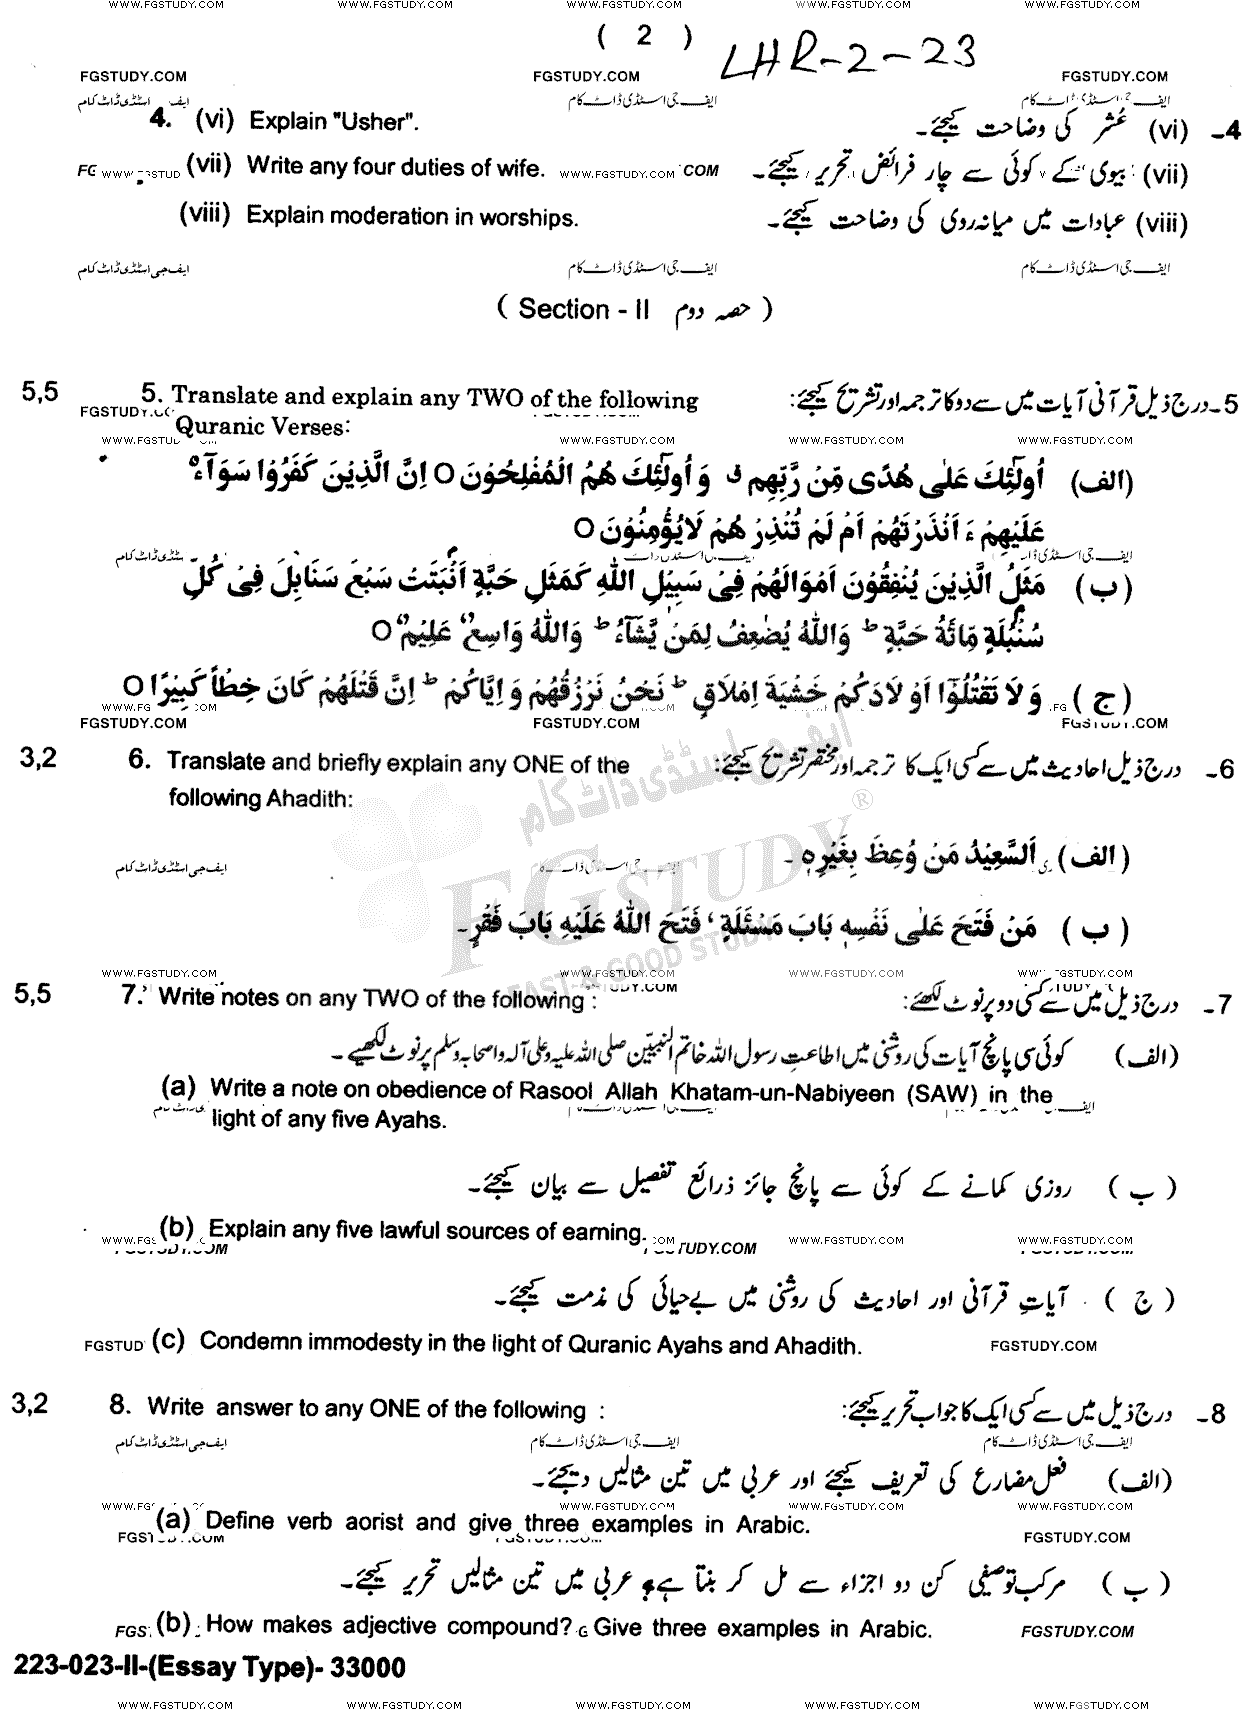 WWW.FGSTUDY.COM WWW.FGSTUDY.COM WWW.FGSTUDY.COM WWW.FGSTUDY.COM WWW.FGSTUDY.COM
( 2 ) LHR-2-23
FGSTUDY.COM FGSTUDY.COM FGSTUDY.COM
ایف جی اسٹڈی ڈاٹ کام
4. (vi) Explain "Usher".
4۔ (vi) عُشر کی وضاحت کیجئے۔
(vii) Write any four duties of wife. WWW.FGSTUDY.COM
(vii) بیوی کے کوئی سے چار فرائض تحریر کیجئے۔
(viii) Explain moderation in worships.
(viii) عبادات میں میانہ روی کی وضاحت کیجئے۔
ایف جی اسٹڈی ڈاٹ کام ایف جی اسٹڈی ڈاٹ کام ایف جی اسٹڈی ڈاٹ کام
( Section - II حصہ دوم )
5,5 5. Translate and explain any TWO of the following
Quranic Verses:
5۔ درج ذیل قرآنی آیات میں سے دو کا ترجمہ اور تشریح کیجئے:
WWW.FGSTUDY.COM WWW.FGSTUDY.COM WWW.FGSTUDY.COM
(الف) اُولٰٓئِكَ عَلٰى هُدًى مِّنْ رَّبِّهِمْ ق وَ اُولٰٓئِكَ هُمُ الْمُفْلِحُوْنَ O اِنَّ الَّذِيْنَ كَفَرُوْا سَوَآءٌ
عَلَيْهِمْ ءَ اَنْذَرْتَهُمْ اَمْ لَمْ تُنْذِرْ هُمْ لَا يُؤْمِنُوْنَ O
(ب) مَثَلُ الَّذِيْنَ يُنْفِقُوْنَ اَمْوَالَهُمْ فِىْ سَبِيْلِ اللّٰهِ كَمَثَلِ حَبَّةٍ اَنْبَتَتْ سَبْعَ سَنَابِلَ فِىْ كُلِّ
سُنْبُلَةٍ مِّائَةُ حَبَّةٍ ط وَاللّٰهُ يُضٰعِفُ لِمَنْ يَّشَآءُ ط وَاللّٰهُ وَاسِعٌ عَلِيْمٌ O
(ج) وَ لَا تَقْتُلُوْٓا اَوْ لَادَكُمْ خَشْيَةَ اِمْلَاقٍ ط نَحْنُ نَرْزُقُهُمْ وَ اِيَّاكُمْ ط اِنَّ قَتْلَهُمْ كَانَ خِطْاً كَبِيْرًا O
FGSTUDY.COM FGSTUDY.COM FGSTUDY.COM
3,2 6. Translate and briefly explain any ONE of the
following Ahadith:
6۔ درج ذیل احادیث میں سے کسی ایک کا ترجمہ اور مختصر تشریح کیجئے:
ایف جی اسٹڈی ڈاٹ کام
FGSTUDY ®
FAST & GOOD STUDY
(الف) اَلسَّعِيْدُ مَنْ وُعِظَ بِغَيْرِهٖ ۔
ایف جی اسٹڈی ڈاٹ کام
(ب) مَنْ فَتَحَ عَلٰى نَفْسِهٖ بَابَ مَسْئَلَةٍ، فَتَحَ اللّٰهُ عَلَيْهِ بَابَ فَقْرٍ۔
WWW.FGSTUDY.COM WWW.FGSTUDY.COM WWW.FGSTUDY.COM
5,5 7. Write notes on any TWO of the following :
7۔ درج ذیل میں سے کسی دو پر نوٹ لکھئے:
(الف) کوئی سی پانچ آیات کی روشنی میں اطاعتِ رسول اللہ خاتم النبیّین صلی اللہ علیہ وعلی آلہ واصحابہ وسلم پر نوٹ لکھیے۔
(a) Write a note on obedience of Rasool Allah Khatam-un-Nabiyeen (SAW) in the
light of any five Ayahs.
(ب) روزی کمانے کے کوئی سے پانچ جائز ذرائع تفصیل سے بیان کیجئے۔
(b) Explain any five lawful sources of earning.
WWW.FGSTUDY.COM WWW.FGSTUDY.COM
(ج) آیاتِ قرآنی اور احادیث کی روشنی میں بے حیائی کی مذمت کیجئے۔
(c) Condemn immodesty in the light of Quranic Ayahs and Ahadith. FGSTUDY.COM
3,2 8. Write answer to any ONE of the following :
8۔ درج ذیل میں سے کسی ایک کا جواب تحریر کیجئے:
ایف جی اسٹڈی ڈاٹ کام ایف جی اسٹڈی ڈاٹ کام ایف جی اسٹڈی ڈاٹ کام
(الف) فعل مضارع کی تعریف کیجئے اور عربی میں تین مثالیں دیجئے۔
WWW.FGSTUDY.COM WWW.FGSTUDY.COM WWW.FGSTUDY.COM
(a) Define verb aorist and give three examples in Arabic.
FGSTUDY.COM
(ب) مرکب توصیفی کن دو اجزاء سے مل کر بنتا ہے؟ عربی میں تین مثالیں تحریر کیجئے۔
(b) How makes adjective compound? Give three examples in Arabic. FGSTUDY.COM
223-023-II-(Essay Type)- 33000
WWW.FGSTUDY.COM WWW.FGSTUDY.COM WWW.FGSTUDY.COM WWW.FGSTUDY.COM WWW.FGSTUDY.COM